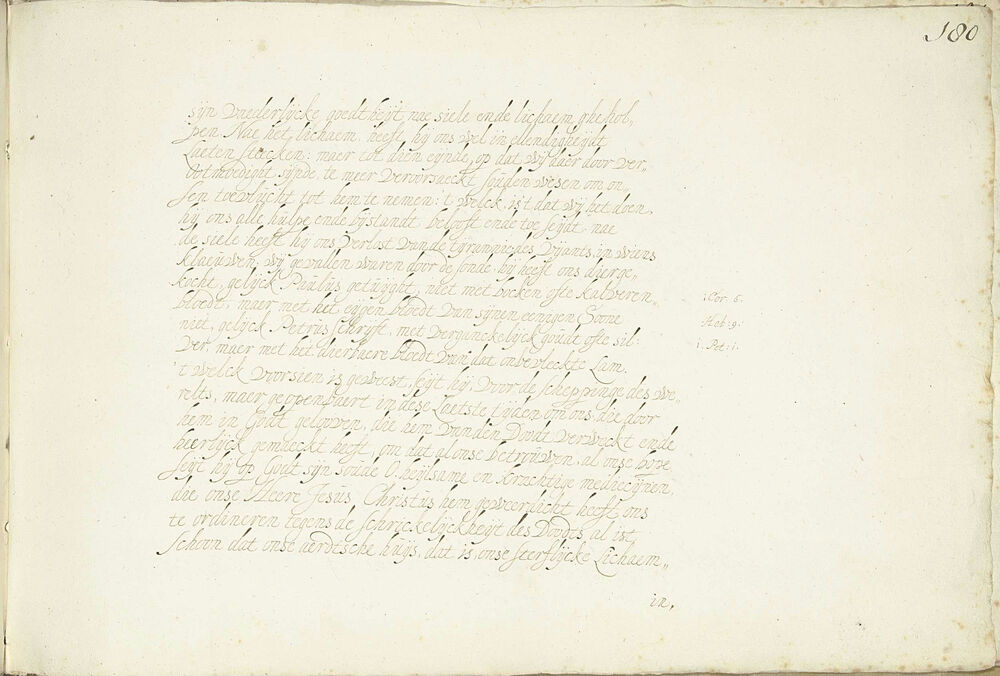 180
sijn vaederlijcke goedtheijt, nae siele ende lichaem ghehol„
pen. Nae het lichaem. heeft hij ons wel in ellendigheijdt
Laeten steecken: maer tot dien eijnde, op dat wij daer door ver„
Ootmoedight sijnde, te meer veroorsaeckt souden wesen om on„
sen toevlucht tot hem te nemen: t welck ist dat wij het doen,
hij ons alle hulpe ende bijstandt belooft ende toe seijdt. nae
de siele heeft hij ons verlost van de tijrannije des Vijants, in wiens
klaeuwen, wij gevallen waren door de sonde. hij heeft ons dier ge„
kocht, gelijck Paulus getuijght, niet met bocken ofte kalveren„
bloedt, maer met het eijgen bloedt van sijnen eenigen Soone
niet, gelijck Petrus schrijft, met verganckelijck goude ofte sil:
ver, maer met het dierbaere bloedt van dat onbevleckte Lam.
't welck voorsien is geweest, seijt hij, voor de scheppinge des we„
relts, maer geopenbaert in dese Laetste tijden om ons, die door
hem in Godt gelooven, die hem van den Doodt verweckt ende
heerlijck gemaeckt heeft, om dat al onse betrouwen, al onse hope
seijt hij op Godt sijn soude O heijlsame en krachtige mediecijnen,
die onse Heere Jesus Christus hem geweerdicht heeft ons
te ordineren tegens de schrickelijckheijt des Doodts, al ist,
schoon dat onse aerdtsche huijs, dat is, onse sterflijcke Lichaem„
in,
1. Cor. 6.
Heb: 9.
1. Pet: 1.